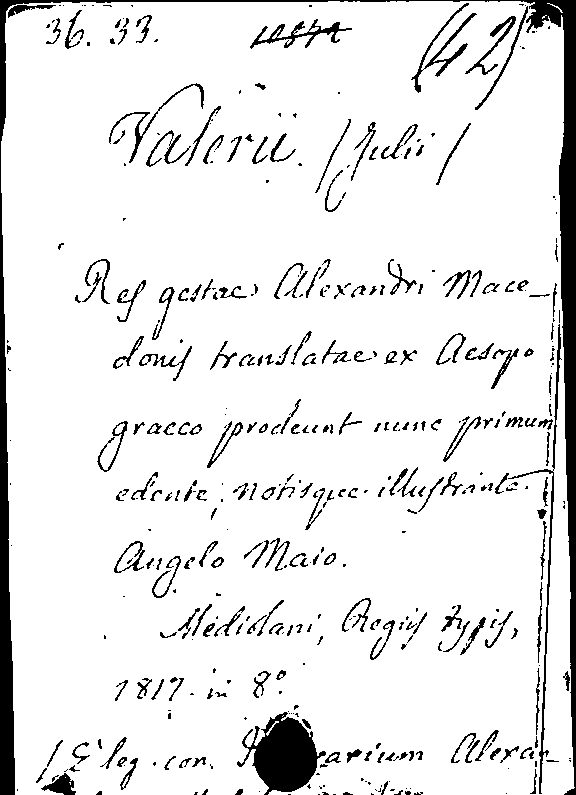 36. 33. 10872 (42)
Valerii. / Julii /
Res gestae Alexandri Mace-
donis translatae ex Aesopo
graeco prodeunt nunc primum
edente, notisque illustrante
Angelo Maio.
Mediolani, Regiis typis,
1817. in 8º.
/ E' leg. con. Alexan-